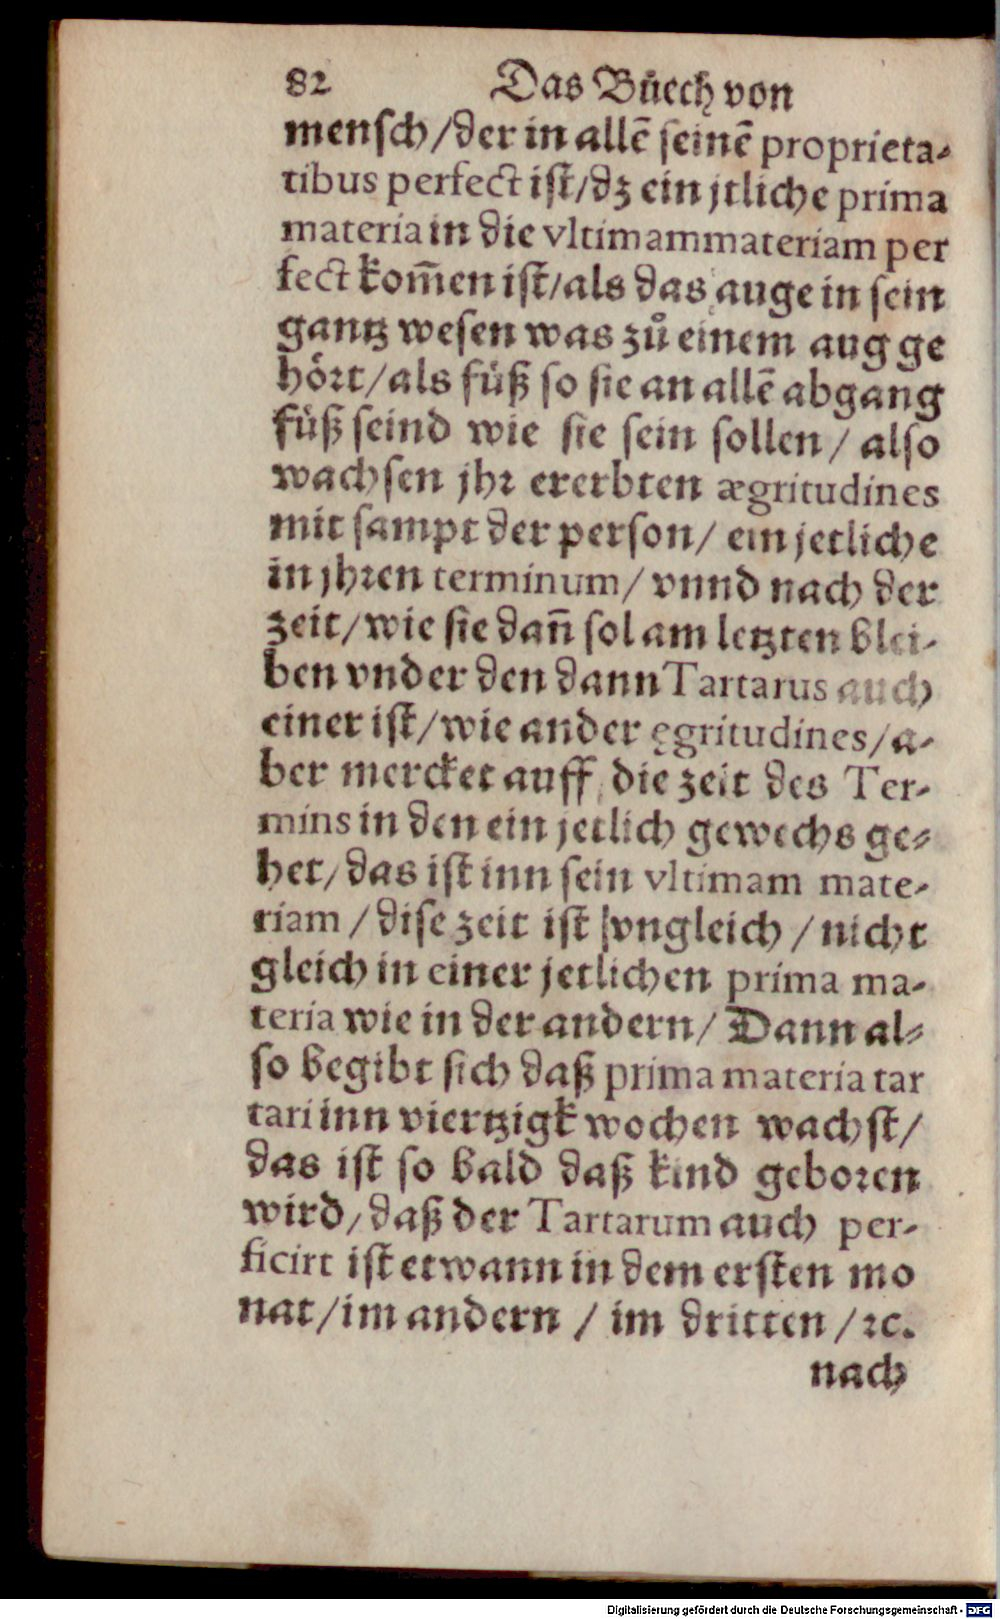 82 Das Bůech von
mensch/der in allē seinē proprieta⸗
tibus perfect ist/dz ein jtliche prima
materia in die vltimammateriam per
fect kom̄en ist/als das auge in sein
gantz wesen was zů einem aug ge
hört/als füß so sie an allē abgang
füß seind wie sie sein sollen/ also
wachsen jhr ererbten ægritudines
mit sampt der person/ ein jetliche
in jhren terminum/ vnnd nach der
zeit/wie sie dan̄ sol am letzten blei⸗
ben vnder den dann Tartarus auch
einer ist/wie ander ęgritudines/a⸗
ber mercket auff die zeit des Ter⸗
mins in den ein jetlich gewechs ge⸗
het/das ist inn sein vltimam mate⸗
riam/dise zeit ist vngleich/nicht
gleich in einer jetlichen prima ma⸗
teria wie in der andern/ Dann al⸗
so begibt sich daß prima materia tar
tari inn viertzigk wochen wachst/
das ist so bald daß kind geboren
wird/daß der Tartarum auch per⸗
ficirt ist etwann in dem ersten mo
nat/im andern/im dritten/ꝛc.
nach
Digitalisierung gefördert durch die Deutsche Forschungsgemeinschaft - DFG